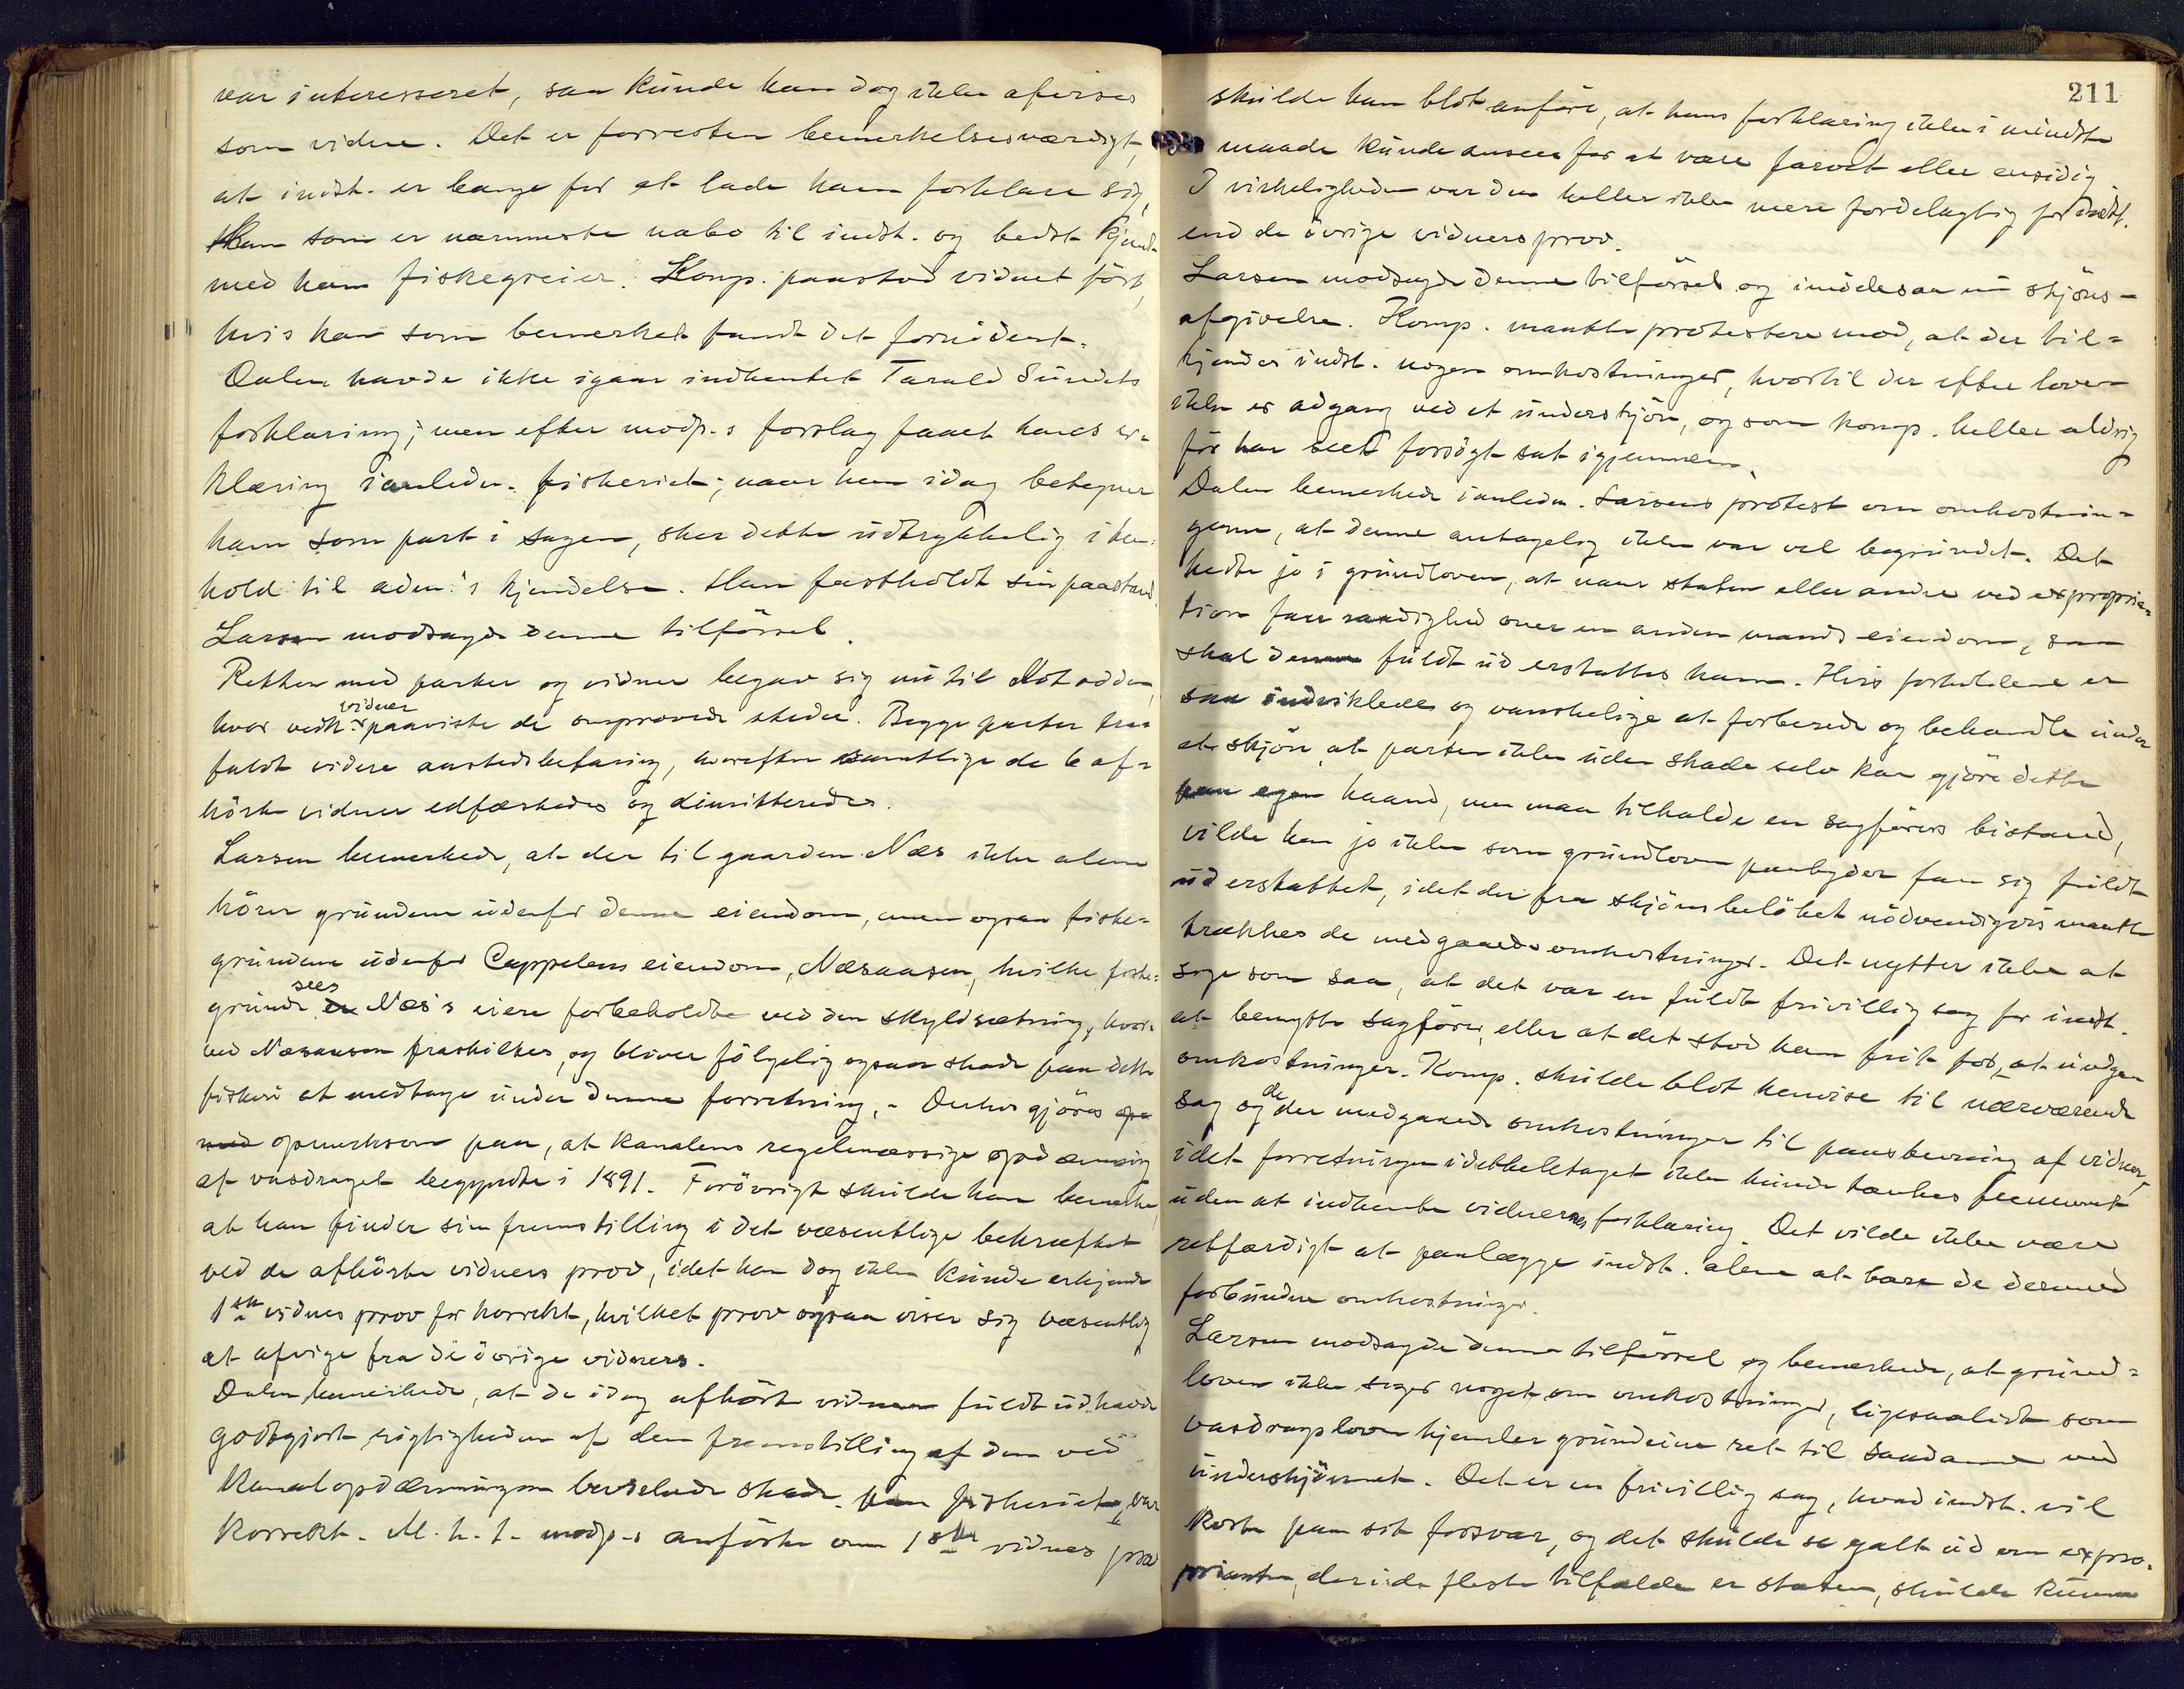 var interesseret, saa kunde han dog ikke afvises
som vidne. Det er forresten bemerkelsesværdigt,
at indst. er bange for at lade ham forklare sig,
Han som er nærmeste nabo til indst. og bedst kjendt
med hans fiskegreier. Komp. paastod vidnet ført,
hvis han som bemerket fandt det fornødent.
Dalen havde ikke igaar indhentet Tarald Sundets
forklaring; men efter modp.s forslag faaet hans er-
klæring i anledn. fiskeriet; naar han idag betegner
ham som part i sagen, sker dette udtrykkelig i hen-
hold til adm.'s kjendelse. Han fastholdt sin paastand.
Larsen modsagde denne tilførsel.
Retten med parter og vidner begav sig nu til Notodden,
hvor vedk. vidner paaviste de omprovede steder. Begge parter fra-
faldt videre aastedsbefaring, hvorefter samtlige de 6 af-
hørte vidner edfæstedes og dimitteredes.
Larsen bemerkede, at der til gaarden Næs ikke alene
hører grunden udenfor denne eiendom, men ogsaa fiske-
grunden udenfor Cappelens eiendom, Næsaasen, hvilke fiske-
grunde sees Næs's eiere forbeholdte ved den skyldsætning, hvor-
ved Næsaasen fraskiltes, og bliver følgelig ogsaa skade paa dette
fiskeri at medtage under denne forretning. - Derhos gjøres op-
merksom paa, at kanalens regelmæssige opdæmning
af vasdraget begyndte i 1891. Forøvrigt skulde han bemerke,
at han finder sin fremstilling i det væsentlige bekræftet
ved de afhørte vidners prov, idet han dog ikke kunde erkjende
1ste vidnes prov for korrekt, hvilket prov ogsaa viser sig væsentlig
at afvige fra de øvrige vidners.
Dalen bemerkede, at de idag afhørte vidner fuldt ud havde
godtgjort rigtigheden af den fremstilling af den ved
Kanalopdæmningen bevirkede skade paa fiskeriet, var
korrekt. M.h.t. modp.s anførte om 1ste vidnes prov
211
skulde han blot anføre, at hans forklaring ikke i mindste
maade kunde ansees for at være farvet eller ensidig.
I virkeligheden var den heller ikke mere fordelagtig for indst.
end de øvrige vidners prov.
Larsen modsagde denne tilførsel og imødesaa nu skjøns-
afgivelse. Komp. maatte protestere mod, at der til-
kjendes indst. nogen omkostninger, hvortil der efter loven
ikke er adgang ved et underskjøn, og som komp. heller aldrig
før har seet forsøgt sat igjennem.
Dalen bemerkede i anledn. Larsens protest om omkostnin-
gerne, at denne antagelig ikke var vel begrundet. Det
hedte jo i grundloven, at naar staten eller andre ved expropria-
tion faar raadighed over en anden mands eiendom, saa
skal denne fuldt ud erstattes ham. Hvis forholdene er
saa indviklede og vanskelige at forberede og behandle under
et skjøn, at parten ikke uden skade selv kan gjøre dette
paa egen haand, men maa tilholde en sagførers bistand,
vilde han jo ikke som grundloven paabyder faa sig fuldt
ud erstattet, idet der fra skjønsbeløbet nødvendigvis maatte
trækkes de medgaaede omkostninger. Det nytter ikke at
sige som saa, at det var en fuldt frivillig sag for indst.
at benytte sagfører, eller at det stod ham frit for, at undgaa
omkostninger. Komp. skulde blot henvise til nærværende
sag og de der medgaaede omkostninger til paastevning af vidner,
idet forretningen i detheletaget ikke kunde tænkes fremmet
uden at indhente vidnernes forklaring. Det vilde ikke være
retfærdigt at paalægge indst. alene at bære de dermed
forbundne omkostninger.
Larsen modsagde denne tilførsel og bemerkede, at grund-
loven ikke siger noget om omkostninger, ligesaalidt som
vasdragsloven hjemler grundeier ret til saadanne ved
underskjønnet. Det er en frivillig sag, hvad indst. vil
koste paa sit forsvar, og det skulde se galt ud om expro-
prianten, der i de fleste tilfælde er staten, skulde kunne